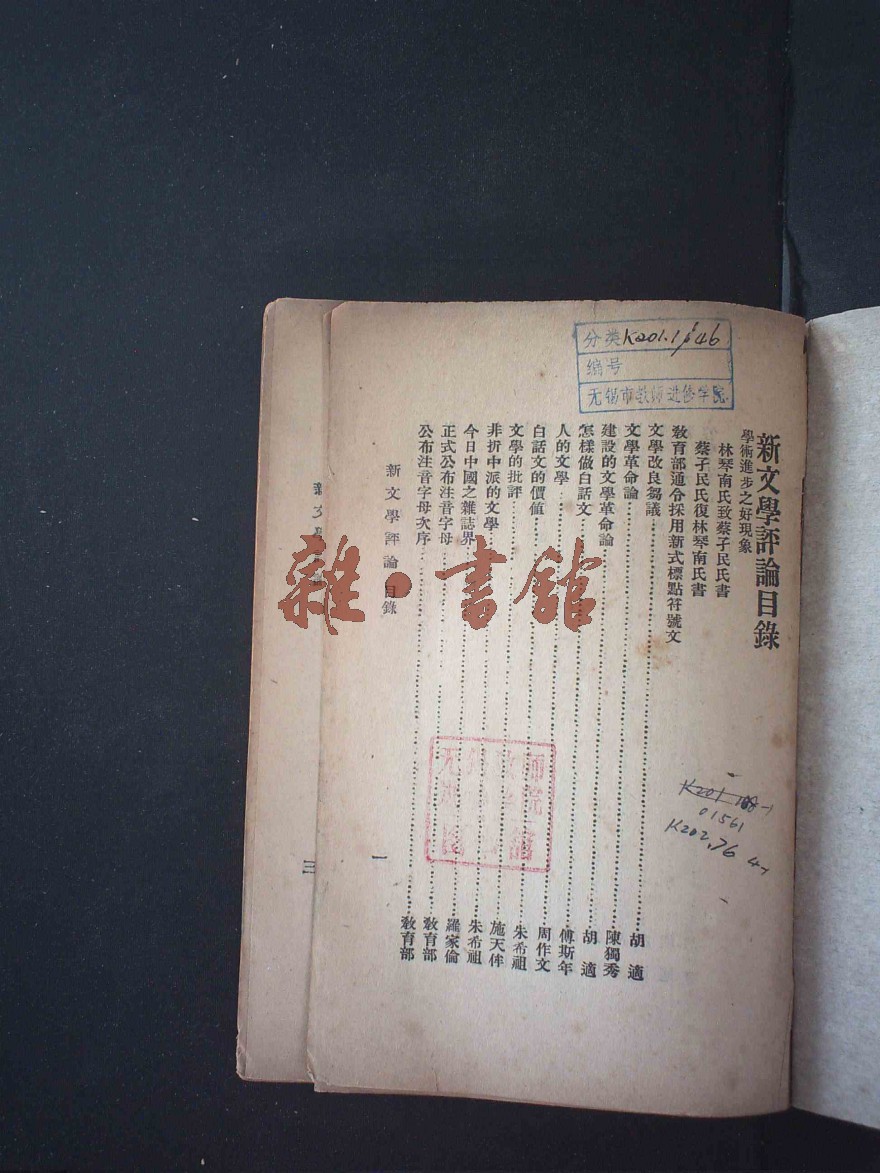 分类K201.1/646
编号
无锡市教师进修学院
新文學評論目錄
學術進步之好現象
林琴南氏致蔡孑民氏書
蔡孑民氏復林琴南氏書
教育部通令採用新式標點符號文
文學改良芻議……胡適
文學革命論……陳獨秀
建設的文學革命論……胡適
怎樣做白話文……傅斯年
人的文學……周作文
白話文的價值……朱希祖
文學的批評……施天侔
非折中派的文學……朱希祖
今日中國之雜誌界……羅家倫
正式公布注音字母……教育部
公布注音字母次序……教育部
新文學評論 目錄
一
三
K202.76
01561
雜·書館